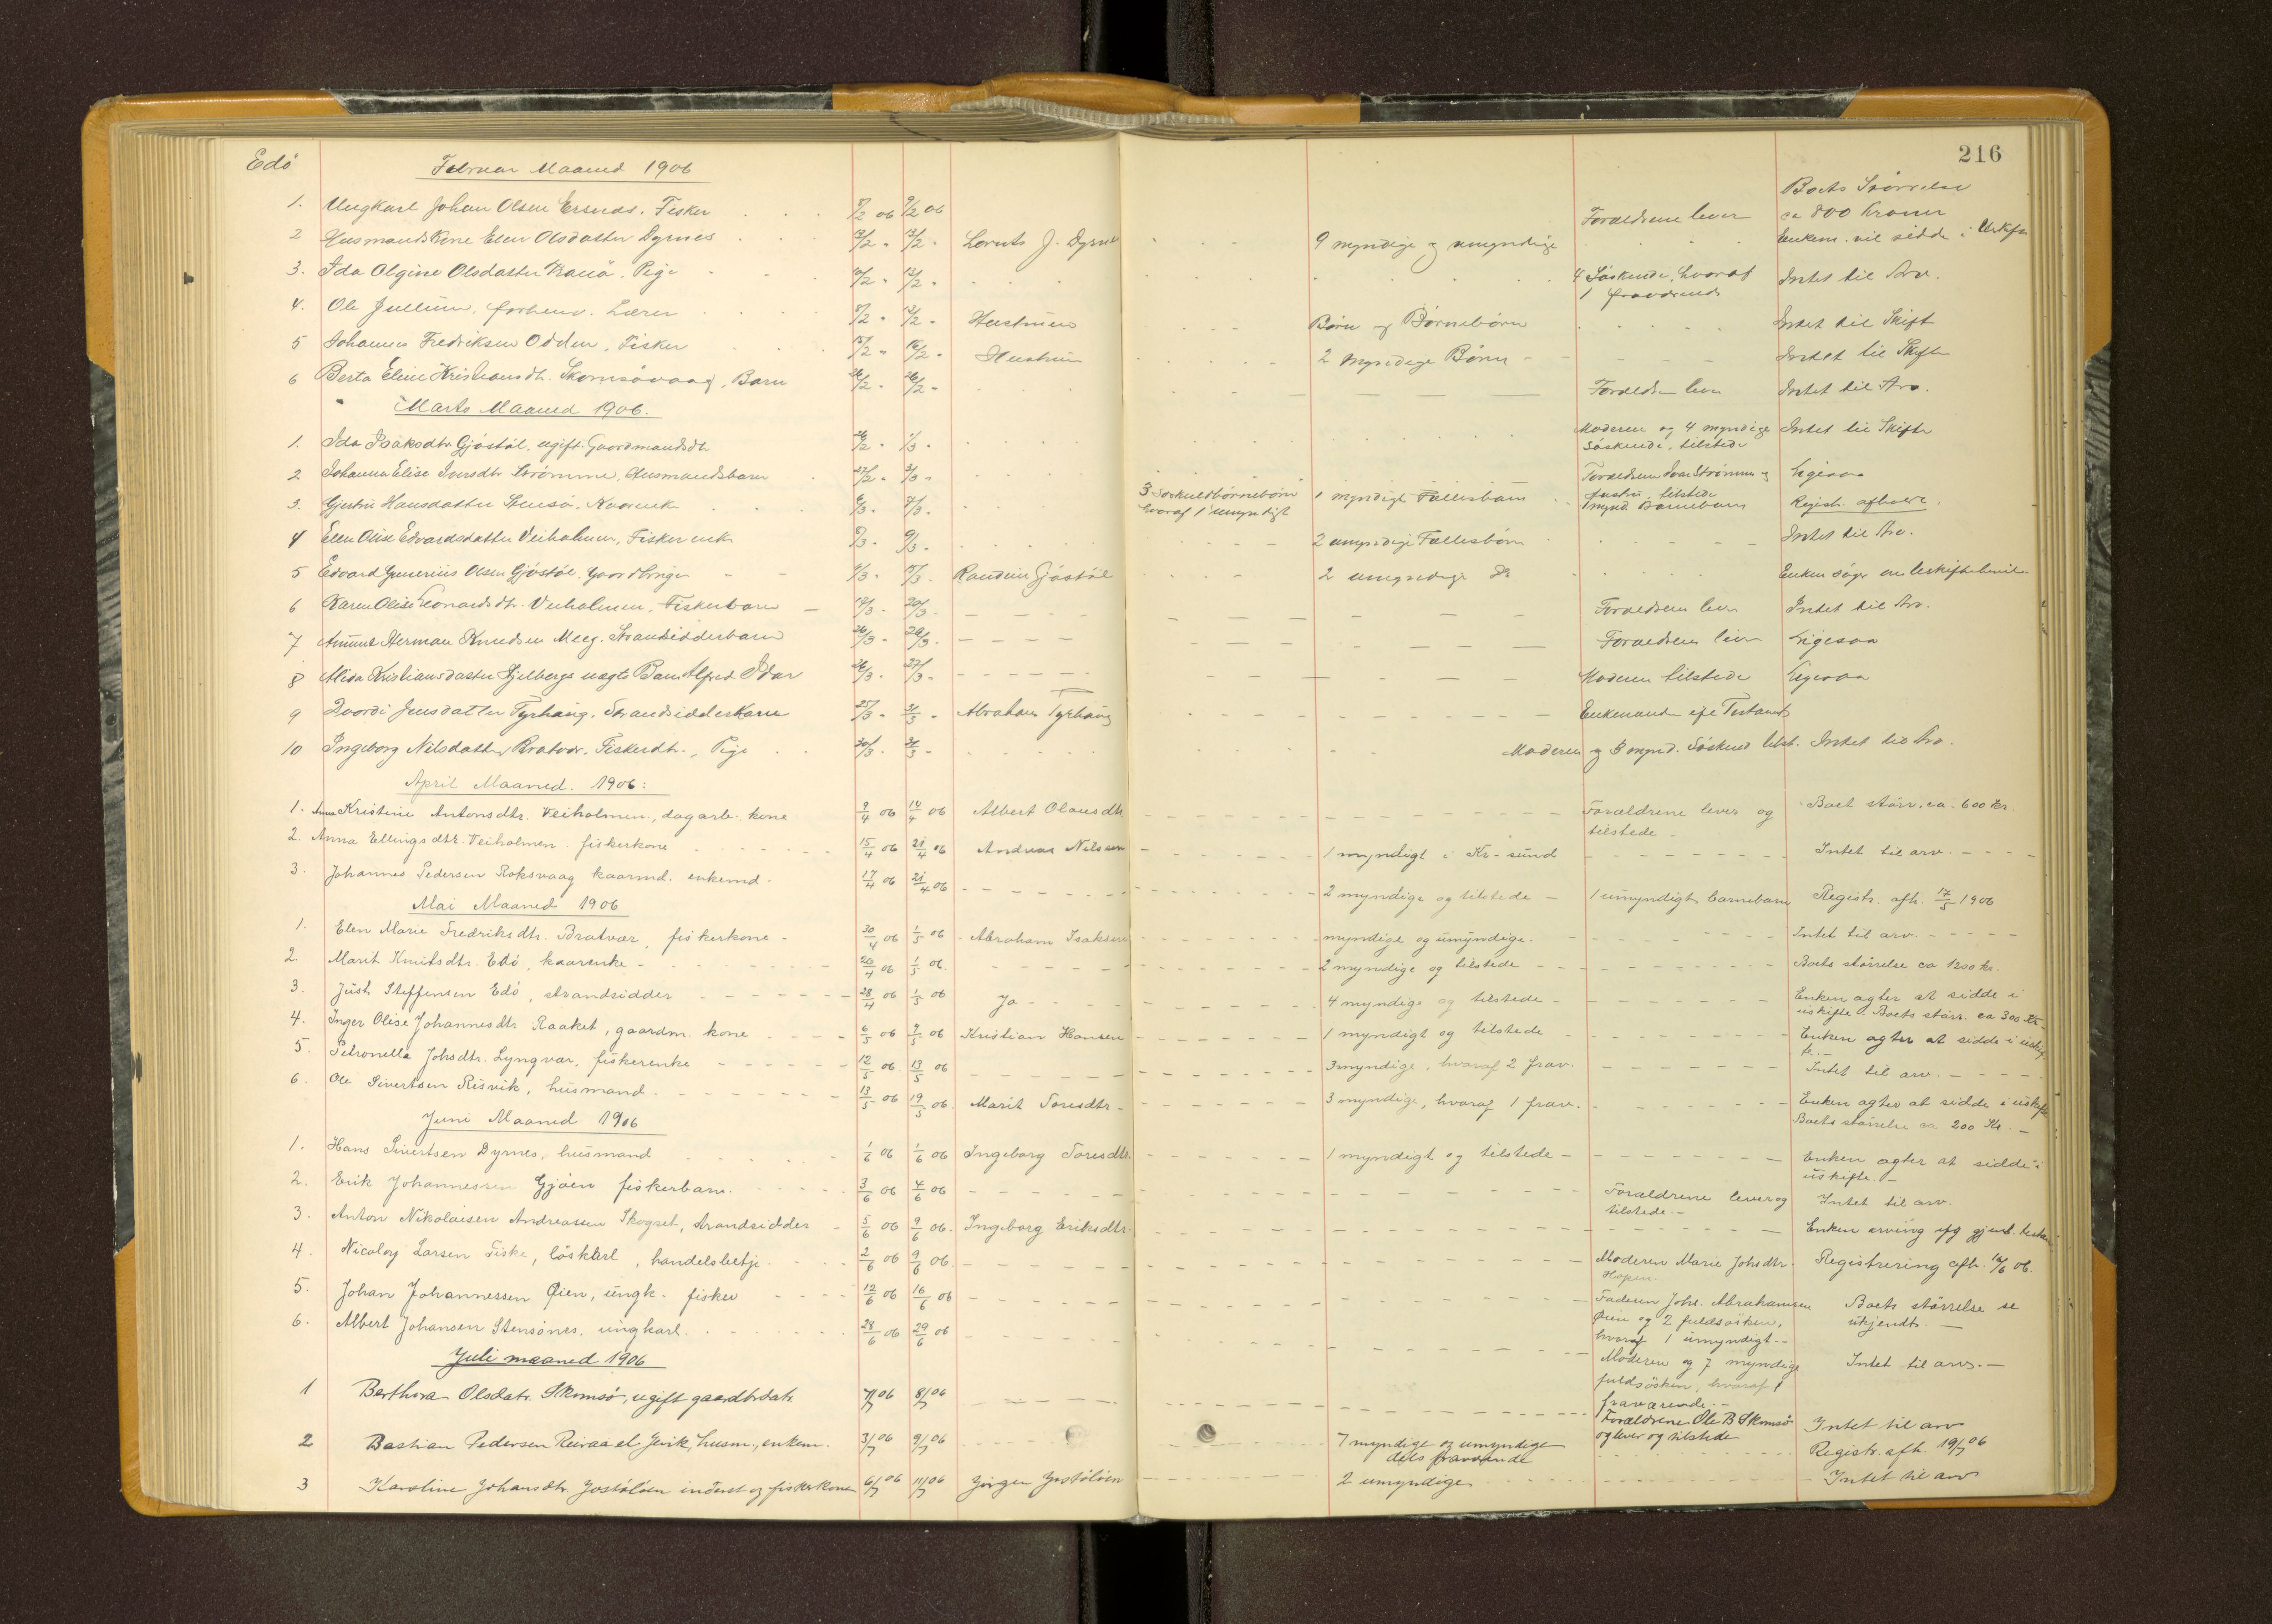 216
Edö
Februar Maaned 1906
Boets Störrelse
1. Ungkarl Johan Olsen Ersnes. Fisker 8/2 06 9/2 06 Forældrene lever ca 800 Kroner
2 Husmandskone Elen Olsdatter Dyrnes 12/2 " Lornts J. Dyrnes 9 myndige og umyndige Enkem. vil sidde i Uskifte
3. Ida Olgine Olsdatter Pige 12/2 " 4 Söskende, hvoraf Intet til Arv.
1 fraværende
4. Ole Jullum, forhenv. Lærer 8/2 " 12/2 " Hustruen Börn og Börnebörn Intet til Skift
5 Johannes Fredriksen Odden, Fisker 15/2 " Hustruen 2 myndige Börn Intet til Skifte
6 Berta Eline Kristiansdtr. Skomsövaag, Barn 26/2 " Forældrene lever Intet til Arv.
Marts Maaned 1906.
1. Ida Isaksdtr Gjöstöl, ugift Gaardmandsdtr 1/3 " Moderen og 4 myndige Intet til Skifte
Söskende, tilstede
2 Johanna Elise Iversdtr Strömme, Husmandsbarn 27/2 " 3/3 " Forældrene Ivar Strömme og Ligesaa
hustru, tilstede
3. Gjertru Hansdatter Stensö. Kaarenk 6/3 " 7/3 " 3 Særkuldbörnebörn 1 myndigt Fællesbarn 1 mynd. Barnebarn Registr. afholdt.
hvoraf 1 umyndigt
4 Elen Olise Edvardsdatter Veiholmen, Fiskerenke 8/3 " 9/3 " 2 umyndige Fællesbörn Intet til Arv.
5 Edvard Gunerius Olsen Gjöstöl. Gaardbruger 15/3 " Randine Gjöstöl 2 umyndige Do Enken söger om Uskiftebevil
6 Karen Olise Leonardsdtr. Veiholmen, Fiskerbarn 17/3 " 20/3 " Forældrene lever Intet til Arv.
7 Herman Knudsen Meeg. Strandsidderbarn 26/3 " Forældrene lever Ligesaa
8 Alida Kristiansdatter Hjelbergs uægte Barn Alfred Idar 26/3 " 27/3 " Moderen tilstede Ligesaa
9 Jensdatter Tyrhaug. Strandsidderkone 25/3 " 31/3 " Abraham Tyrhaug Enkemanden efter Testament
10 Ingeborg Nilsdatter Bratvær. Fiskerdtr., Pige 30/3 " 31/3 " Moderen og 3 mynd. Söskend tilst. Intet til Arv.
April Maaned. 1906:
1. Anna Kristine Antonsdtr. Veiholmen, dagarb. kone 9/4 06 14/4 06 Albert Olausdtr Forældrene lever og Boet störr. ca. 600 kr.
tilstede
2. Anna Ellingsdtr. Veiholmen fiskerkone 15/4 06 21/4 06 Andreas Nilssen 1 myndigt i Kr-sund Intet til arv.
3. Johannes Pedersen Roksvaag kaarmd. enkemd. 17/4 06 21/4 06 2 myndige og tilstede 1 umyndigt barnebarn Registr. afh. 17/5 1906
Mai Maaned 1906
1. Elen Marie Fredriksdtr. Bratvær, fiskerkone 30/4 06 1/5 06 Abraham Isaksen myndige og umyndige. Intet til arv.
2. Marit Knutsdtr. Edö, kaarenke 26/4 06 1/5 06. 2 myndige og tilstede Boets störrelse ca 1200 kr.
3. Just Steffensen Edö, strandsidder 28/4 06 1/5 06 Ja 4 myndige og tilstede Enken agter at sidde i
uskifte. Boets störr. ca 300 Kr.
4. Inger Olise Johannesdtr. Raaket, gaardm. kone 6/5 06 9/5 06 Kristian Hansen 1 myndigt og tilstede Enken agter at sidde i uskif
te.
5. Petronelle Johsdtr. Lyngvær, fiskerenke 12/5 06 13/5 06 3 myndige, hvoraf 2 frav. Intet til arv.
6. Ole Sivertsen Risvik, husmand 13/5 06 19/5 06. Marit Toresdtr. 3 myndige, hvoraf 1 frav. Enken agter at sidde i uskifte
Boets störrelse ca 200 Kr.
Juni Maaned 1906
1. Hans Sivertsen Dyrnes, husmand 1/6 06 1/6 06 Ingeborg Toresdtr. 1 myndigt og tilstede Enken agter at sidde i
uskifte.
2. Erik Johannessen Gjöen fiskerbarn. 3/6 06 4/6 06 Forældrene lever og Intet til arv.
tilstede.
3. Anton Nikolaisen Andreassen Skogset, strandsidder 5/6 06 9/6 06. Ingeborg Eriksdtr. Enken arving
4. Nicolay Larsen Fiske, löskarl, handelsbetje. 2/6 06 9/6 06. Moderen Marie Johsdtr. Registrering afh. 16/6 06.
Hopen
5. Johan Johannessen Öien, ungk. fisker 12/6 06 16/6 06 Faderen Johs. Abrahamsen Boets störrelse se
Öien og 2 fuldsösken, ukjendt.
hvoraf 1 umyndigt
6. Albert Johansen Stensönes, ungkarl. 28/6 06 29/6 06 Moderen og 7 myndige Intet til arv.
fuldsösken, hvoraf 1
fraværende.
Juli maaned 1906
1 Berthora Olsdatr. Skomsö, ugift gaardbrdatr. 7/7 06 8/7 06 Forældrene Ole B Skomsö Intet til arv
og lever og tilstede
2 Bastian Pedersen husm., enkem. 3/7 06 9/7 06 7 myndige og umyndige Registr. afh. 19/7 06
dels fraværende
3 Karoline Johansdtr. Jostölöen inderst og fiskerkone 6/7 06 11/7 06 Jörgen Jostölöen 2 umyndige Intet til arv